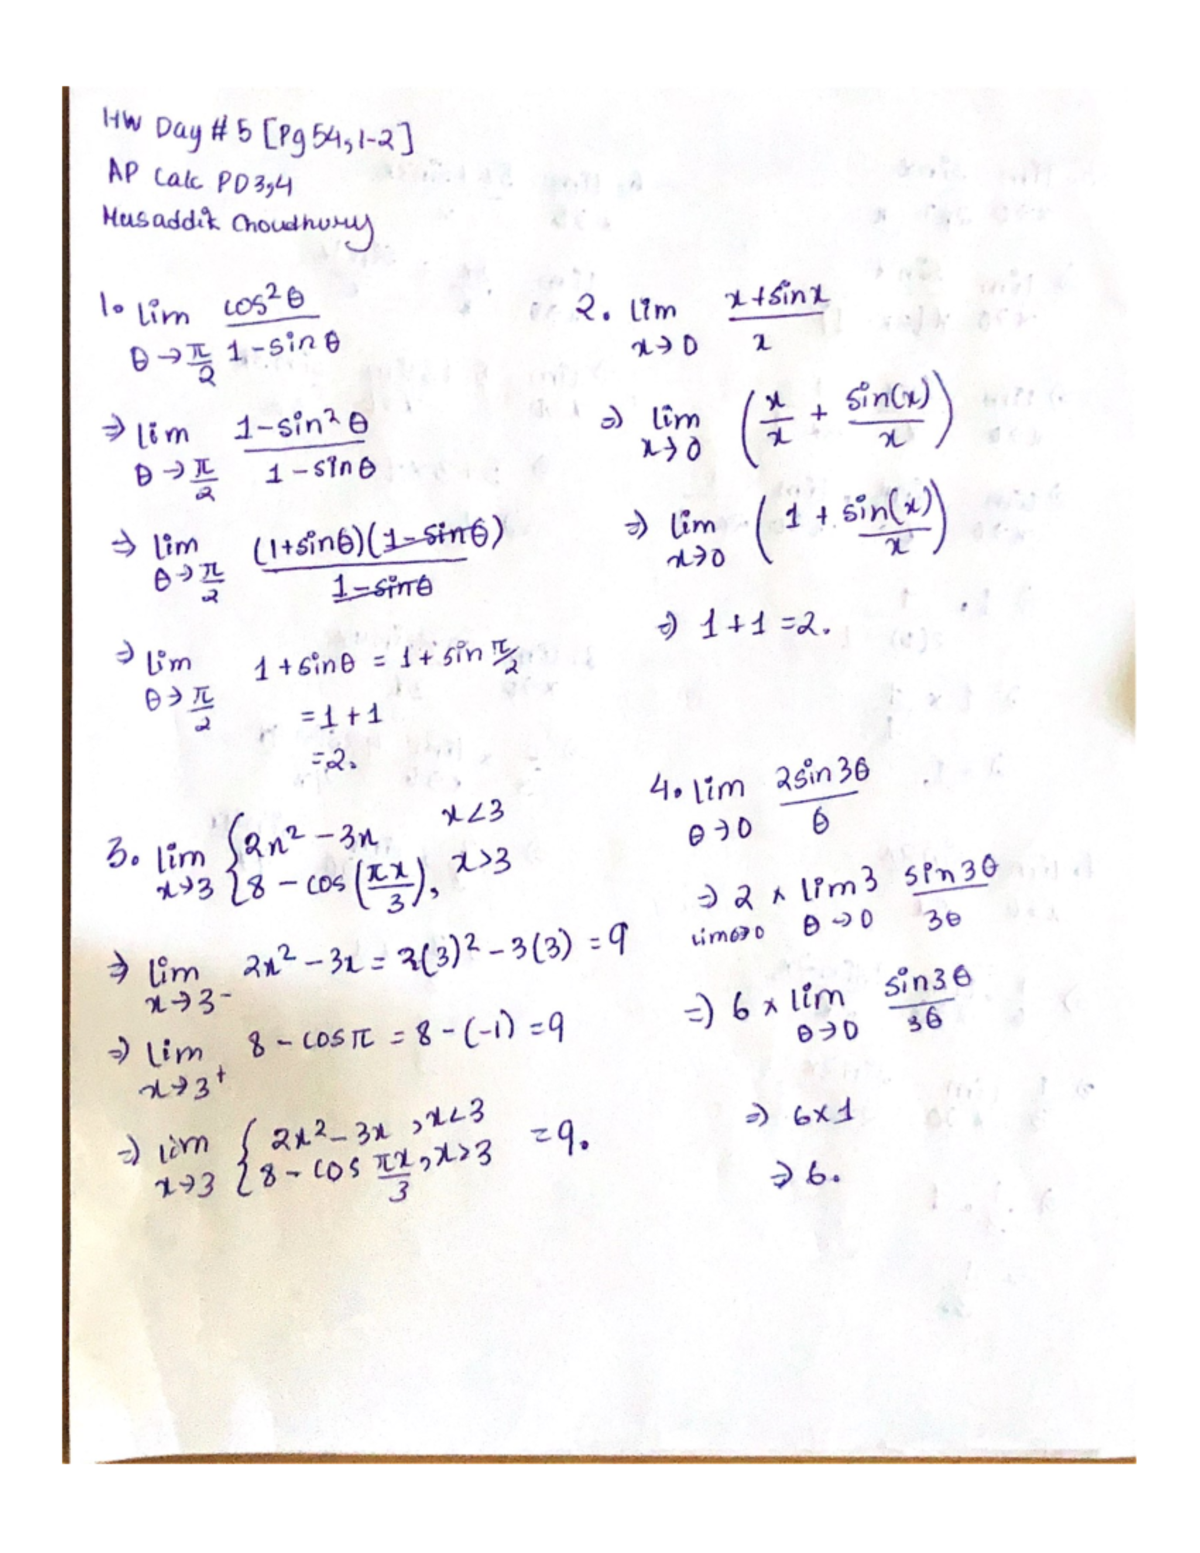 HW Day # 5 [Pg 54, 1-2]
AP Calc PD 3,4
Musaddik Choudhury
1. lim θ→π/2 cos²θ / 1-sin θ
⇒ lim θ→π/2 1-sin²θ / 1-sinθ
⇒ lim θ→π/2 (1+sinθ)(1-sinθ) / 1-sinθ
⇒ lim θ→π/2 1+sinθ = 1+sin π/2
=1+1
=2.
2. lim x→0 x+sinx / x
⇒ lim x→0 (x/x + sin(x)/x)
⇒ lim x→0 (1 + sin(x)/x)
⇒ 1+1=2.
3. lim x→3 { 2x²-3x x<3
8-cos(πx/3), x>3
⇒ lim x→3⁻ 2x²-3x = 2(3)²-3(3) = 9
⇒ lim x→3⁺ 8-cosπ = 8-(-1) = 9
⇒ lim x→3 { 2x²-3x, x<3
8-cos πx/3, x>3 = 9.
4. lim θ→0 2sin3θ / θ
⇒ 2 × lim θ→0 3 sin3θ / 3θ
lim θ→0
⇒ 6 × lim θ→0 sin3θ / 3θ
⇒ 6×1
⇒ 6.